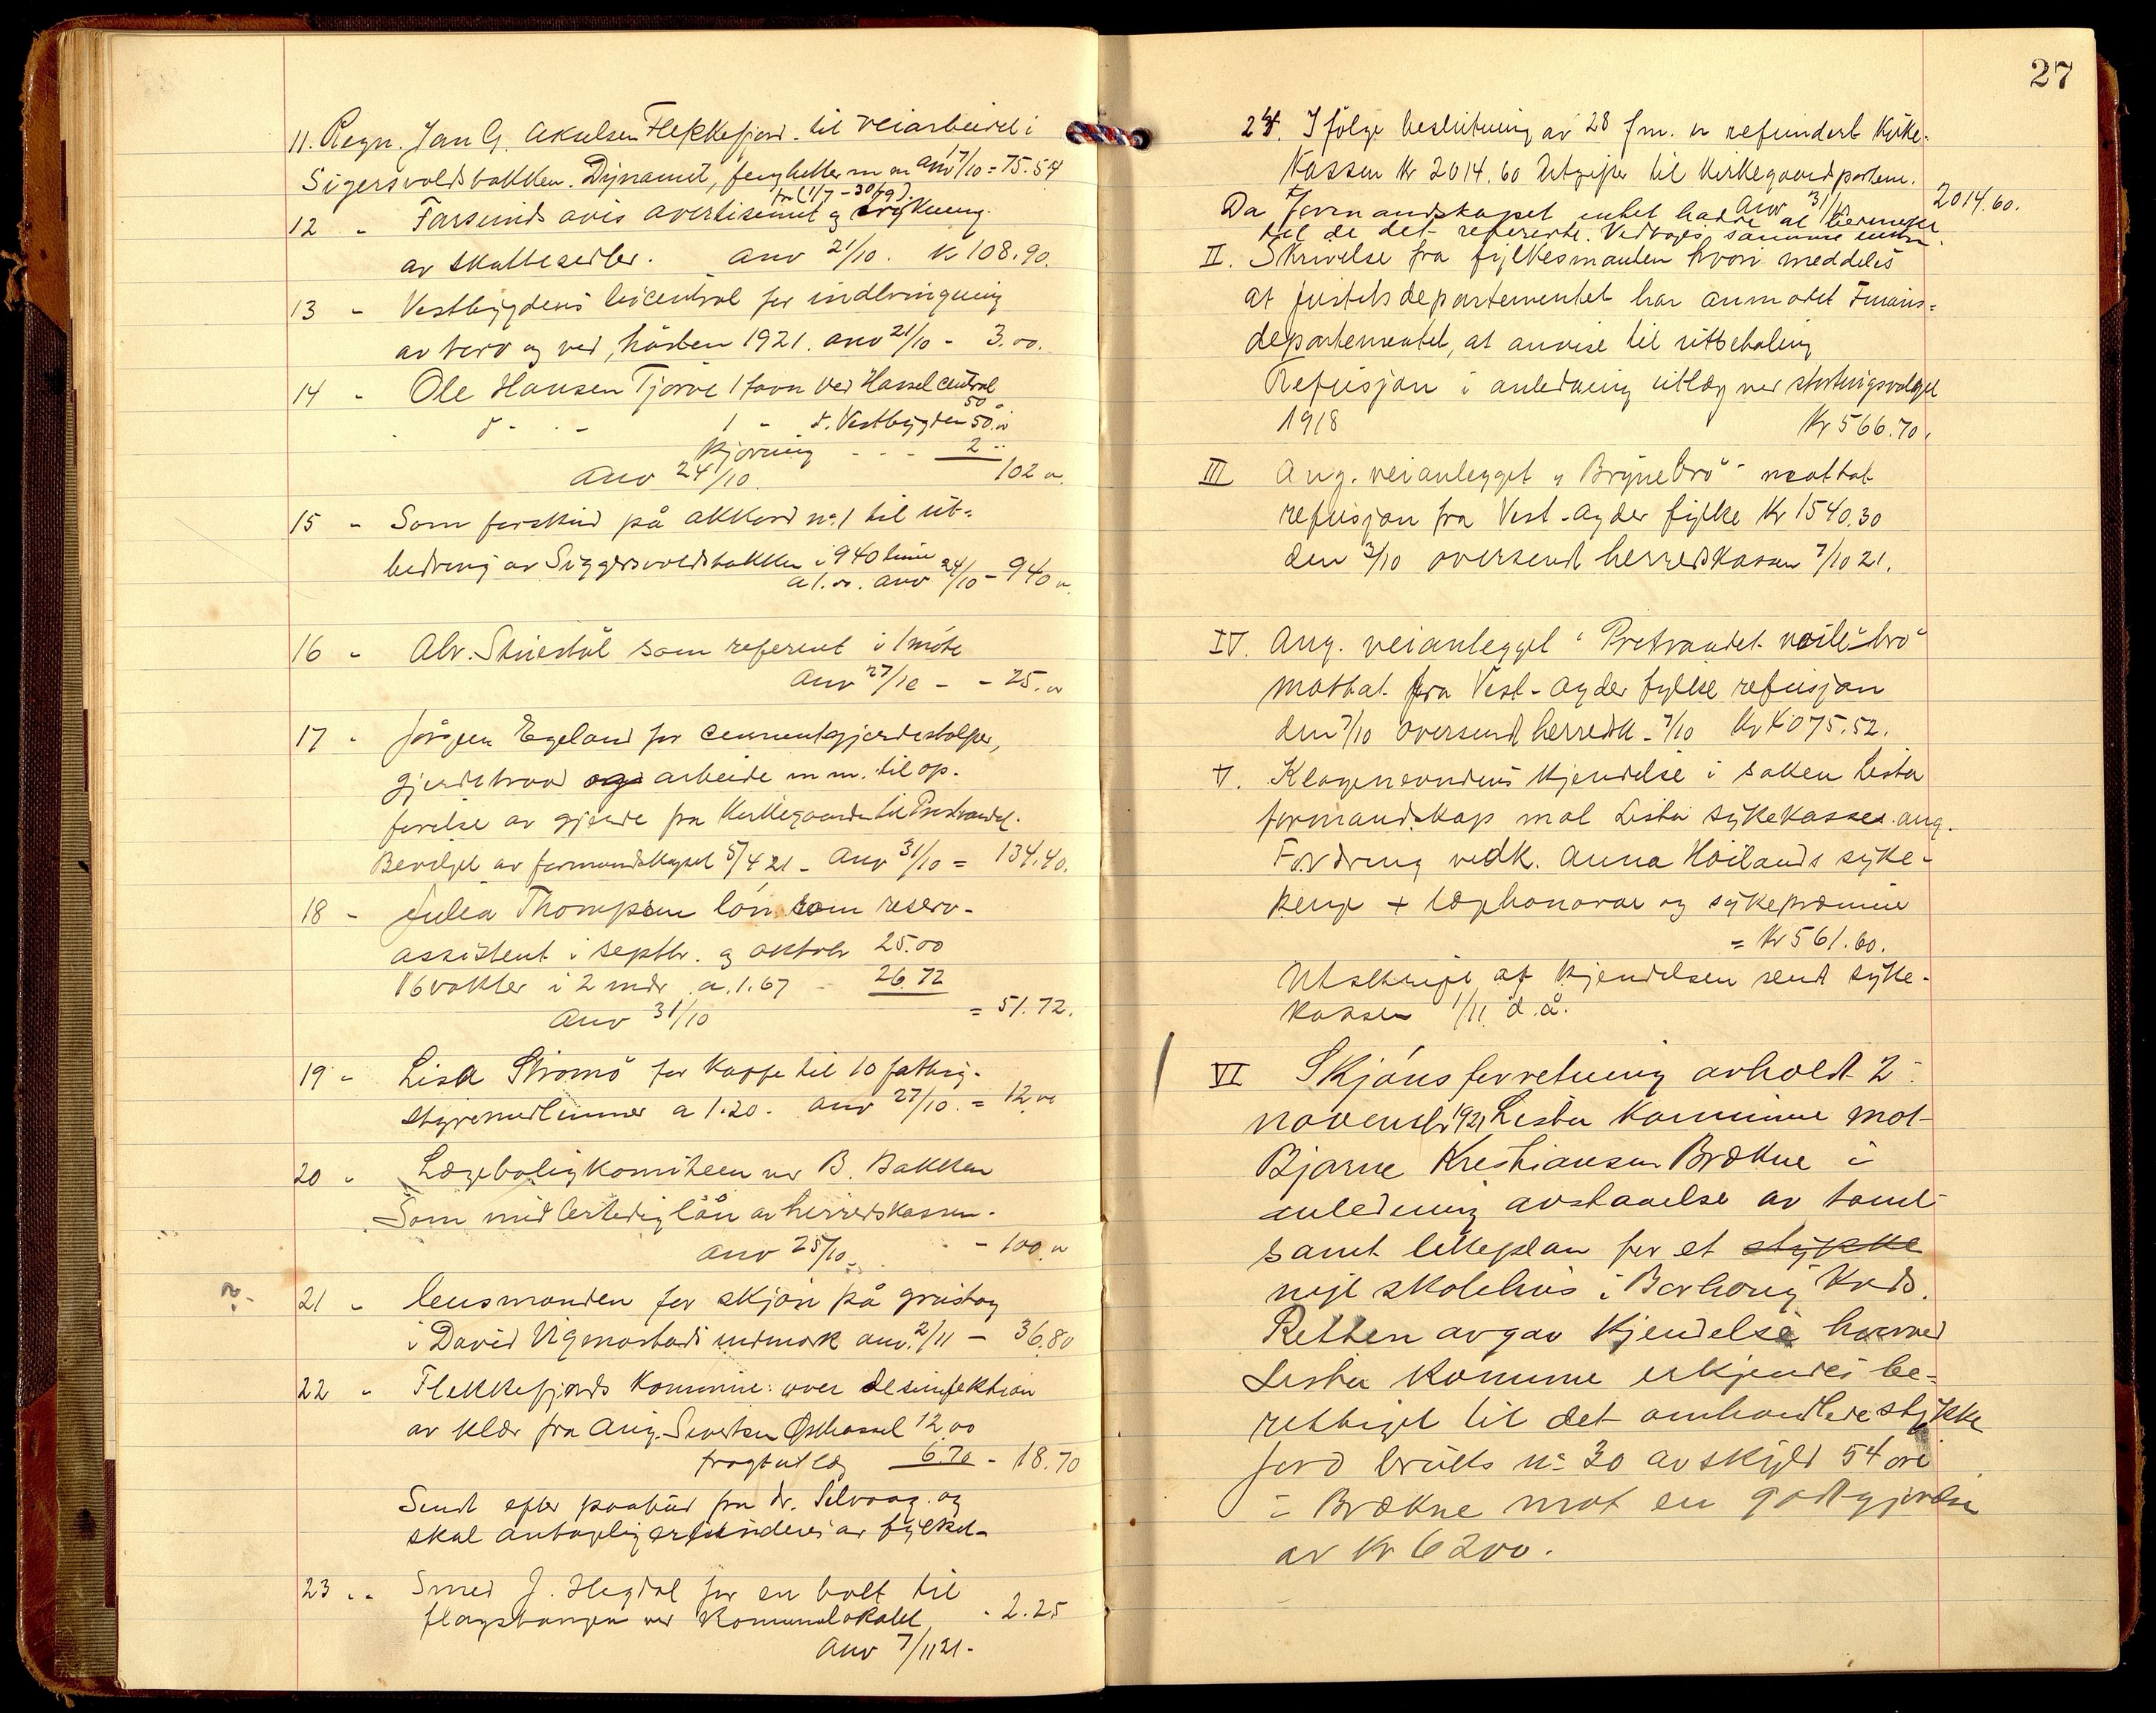 11. Regn. Jan G. Akselsen Flekkefjord til veiarbeidet i
Sigersvoldsbakken. Dynamit, fenghetter m m anv 17/10 = 75.54
12 " Farsunds avis avertisement og trykning
fra (1/7 - 30/9)
av skattesedler. anv 21/10. kr 108.90.
13 - Vestbygdens licentral for indbringning
av torv og ved, hösten 1921. anv 21/10 - 3.00.
14 - Ole Hansen Tjörve 1 favn ved Hassel central
50
d - . - 1 - d. Vestbygden 50.00
Kjöring - - - 2 --
Anv 24/10. 102 00.
15 - Som forskud på akkord no. 1 til ut-
bedring av Siggersvoldsbakken i 940 timer
a 1.00. anv 24/10 - 940 00.
16 - Alv. Stuestöl som referent i 1 möte
Anv 27/10 - - 25.00
17 - Jörgen Egeland for cementgjerdestolper,
gjerdetraad og arbeide m m. til op-
förelse av gjerde fra Kirkegaarden til Prestvandet.
Bevilget av formandskapet 5/4 21 - Anv 31/10 = 134.40.
18 - Julea Thompsen lön som reserv-
assistent i septbr. og oktobr 25.00
16 vakter i 2 mdr a. 1.67 - 26.72
Anv 31/10 = 51.72.
19 - Lisa Strömö for kaffe til 10 fattig-
styremedlemmer a 1.20. anv 27/10. = 12.00
20 - Lægeboligkomiteen ved B. Bakken
Som midlertidig lån av herredskassen.
Anv 25/10 - 100.00
21 - lensmanden for skjön på grustag
i David Vigmostads utmark anv. 2/11 - 36.80
22 - Flekkefjords Kommune: over desinfektion
av klær fra Aug. Sivertsen Östhassel 12.00
fragtutlæg 6.70 - 18.70
Sendt efter paabud fra dr. Selvaag. og
skal antagelig refunderes av fylket.
23 .. Smed J. Hegdal for en bolt til
flagstangen ved Komunelokalet - 2.25
Anv 7/11 21.
27
24. Ifölge beslutning av 28 f m. er refundert Kirke-
kassen kr 2014.60 Utgifter til Kirkegaardportene.
Anv 31/10 2014.60.
Da formandskapet intet hadde at bemerke
til de det refererte. Vedtages samme enst.
II. Skrivelse fra fylkesmanden hvori meddeles
at justitsdepartementet har anmodet Finans-
departementet, at anvise til utbetaling
Refusjon i anledning utlæg ved stortingsvalget
1918 kr 566.70.
III Ang. veianlegget "Brynebrö" - mottat
refusjon fra Vest-Agder fylke kr 1540.30
den 3/10 oversendt herredskassen 7/10 21.
IV. Ang. veianlegget "Pretvandet
mottat fra Vest-Agder fylke refusjon
den 7/10 oversendt herredsk. 7/10
V. Klagenevndens kjendelse i saken Lista
formandskap mot Lista sykekasse ang.
Fordring vedk. Anna Höilands syke-
penge + lægehonorar og sykepræmie
= kr 561.60.
Utskrift af kjendelsen sendt syke-
kassen 1/11 d.å.
VI Skjönsforretning avholdt 2-
novembr 1921 Lista Kommune mot
Bjarne Kristiansen Brækne i
anledning avstaaelse av tomt
samt lekeplan for et stykke
nyt skolehus i Borhaug Krds.
Retten avgav kjendelse hvorved
Lista Komune erkjendes be-
rettiget til det omhandlede stykke
jord bruks no 30 av skyld 54 öre
i Brækne mot en godtgjörelse
av kr 6200.